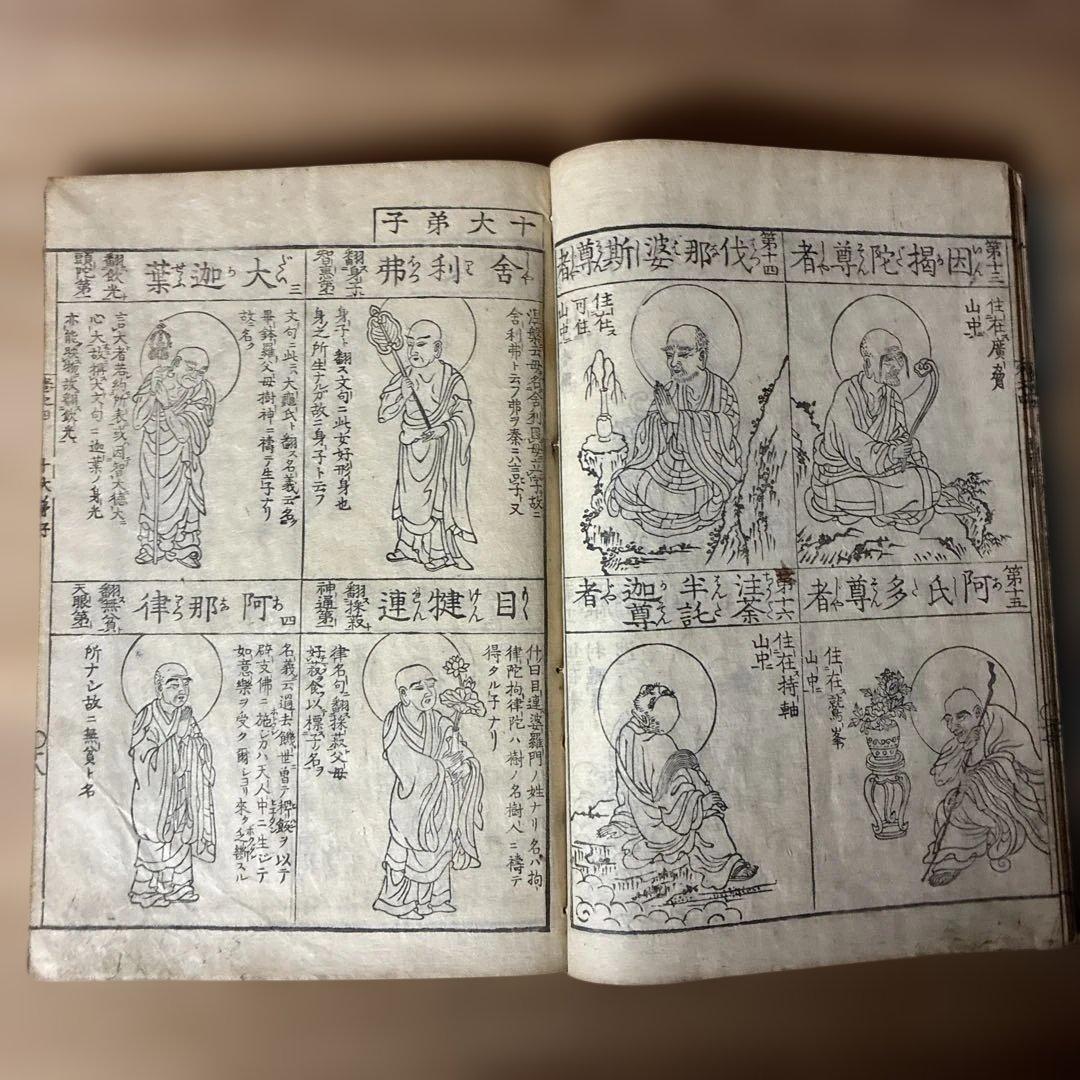 第十三
因揭陀尊者
住在廣脅
山中
第十四
伐那婆斯尊者
住在
可住
山中
第十五
阿氏多尊者
住在鷲峯
山中
第十六
注荼半託迦尊者
住在持軸
山中
十大弟子
舍利弗
翻身子
智惠第一
舍利弗ト云フ弗ヲ秦ニハ云子ト又
身子ト翻ス文句ニ此女好形身也
身之所生ナルガ故ニ身子ト云フ
二
目犍連
翻採菽
神通第一
什曰目連婆羅門ノ姓ナリ名ハ拘
律陀拘律陀ハ樹ノ名樹人ニ禱テ
得タル子ナリ
律名句翻採菽父母
好菽食以標子名ヲ
三
大迦葉
翻飲光
頭陀第一
文句ニ此ニ大龜氏ト翻ス名義云名
畢鉢羅父母樹神ニ禱テ生子ナリ
故ニ名ク
心大故稱大文句ニ迦葉ノ身光
四
阿那律
翻無貧
天眼第一
名義云過去餓世曾テ稗飯ヲ以テ
辟支佛ニ施シカハ天人中ニ生シテ
如意樂ヲ受ク爾シヨリ來タ乏斷スル
所ナシ故ニ無貧ト名